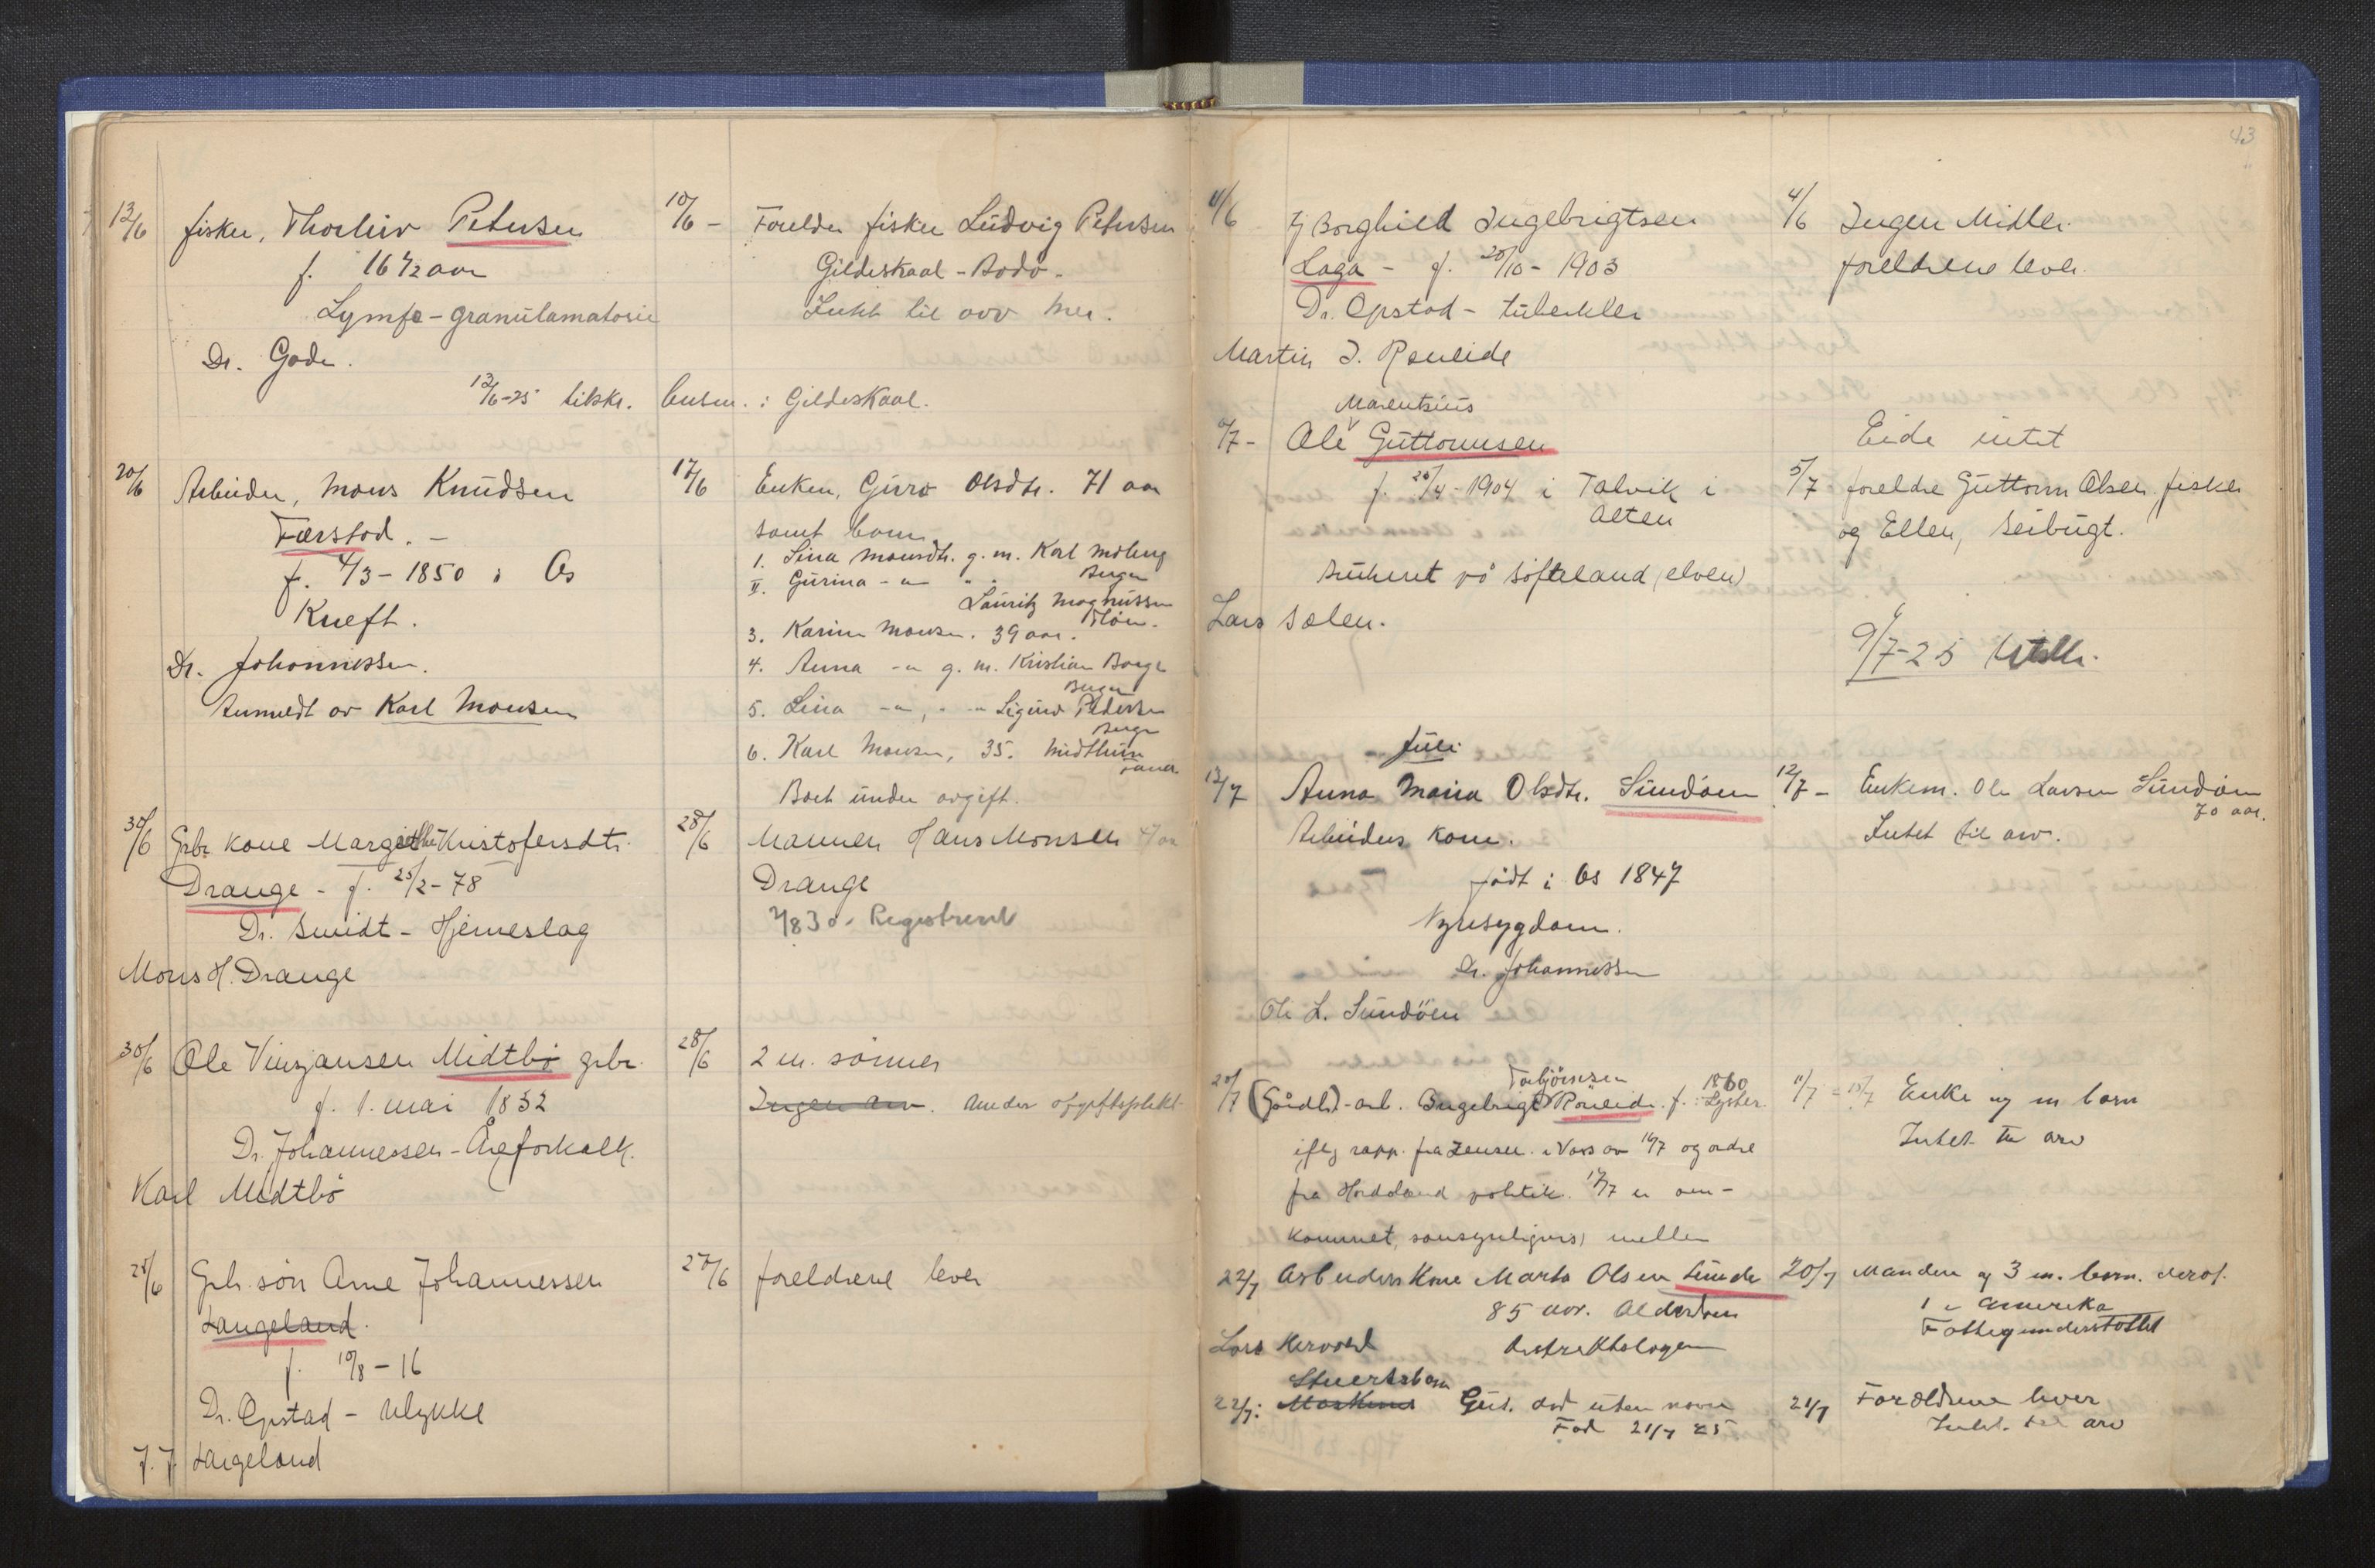 12/6 fisker, Thorleiv Petersen 10/6 - Forelder fisker Ludvig Petersen
f. 16 1/2 aar Gildeskaal - Bodø.
Lymfo-granulamatosis Intet til arv mer.
Dr. Gade.
12/6-25 tilskr. lensm. i Gildeskaal.
20/6 Arbeider, Mons Knudsen 17/6 Enken, Guro Olsdtr. 71 aar
Færstad. - samt barn
f. 4/3-1850 i Os 1. Lina Monsdtr. g. m. Karl Moberg
Bergen
Kreft. II. Gurina - " - " Lauritz Magnussen
3. Karine Monsen. 39 aar.
Dr. Johannessen. 4. Anna -"- g. m. Kristian Borge
Bergen
Anmeldt av Karl Monsen 5. Lina -"- " Sigurd Pedersen
Bergen
6. Karl Monsen, 35. Midthun
Fana.
Boet under avgift.
30/6 Grbr kone Margrethe Kristofersdtr. 28/6 Mannen Hans Monsen
Drange - f. 25/2-78 Drange
Dr. Smidt - Hjerneslag Registrert
Mons H. Drange
30/6 Ole Vinzjansen Midtbø grbr. 28/6 2 m. sønner
f. 1. mai 1832 Ingen arv. Under avgiftsplikt
Dr. Johannessen - Åreforkalk.
Karl Midtbø
28/6 Grbr. søn Arne Johannessen 27/6 foreldrene lever
Langeland.
f. 10/8-16
Dr. Opstad - Ulykke
J. J. Langeland
43
11/6 Pj Borghild Ingebrigtsen 4/6 Ingen Midler.
Haga - f. 20/10-1903 foreldrene lever.
Dr. Opstad - tuberkler
Martin I. Røneide
Marentsius
7/7 - Ole Guttormsen Eide intet
f. 20/4-1904 i Talvik i 5/7 foreldre Guttorm Olsen fisker
Alten og Ellen, Seibugt.
Druknet på Søfteland (elven)
Lars Sælen.
9/7-25
Juli
13/7 Anna Maria Olsdtr. Sundøen 12/7 - Enkem. Ole Larsen Sundøen
70 aar.
Arbeiders kone. Intet til arv.
født i Os 1847
Nyresygdom.
Dr. Johannessen
Ole L. Sundøen
Torbjørnsen 1860
20/7 (Gårdbr)-arb. Ingebrigt Røneide. f. i Lyster. 11/7 = 15/7 Enke og m barn
iflg rapp. fra Lensm. i Voss av 16/7 og ordre Intet til arv
fra Hordaland politik. 17/7 er om-
kommet, sansynligvis mellem
22/7 Arbeiders Kone Marta Olsen Lunde 20/7 Manden og 3 m. barn. derof.
85 aar. Alderdom 1 i Amerika
Fattigunderstøttet
Lars Hervard Distriktslægen
Stuertsbarn
22/7: Maskinist Gut. død uten navn 21/7 Forældrene lever
Fød 21/7 25 Intet til arv